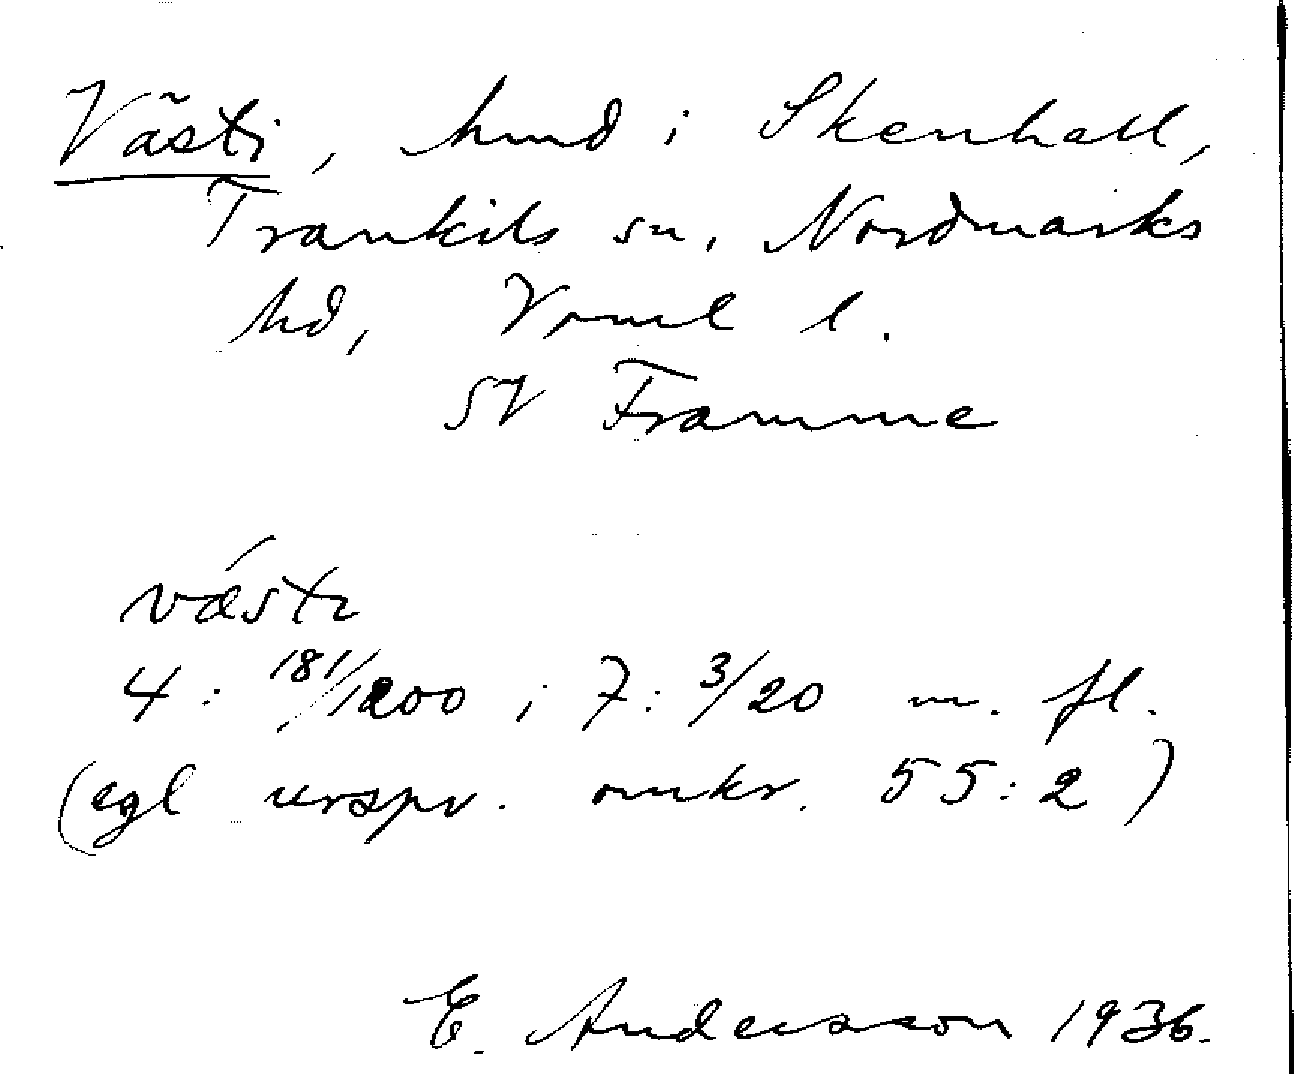 Västi, hmd i Skenhall,
Trankils sn, Nordmarks
hd, Vrml l.
SV Framme
västɩ
4: 181/1200 ; 7: 3/20 m. fl.
(egl urspr. omkr. 55:2)
E. Andersson 1936.